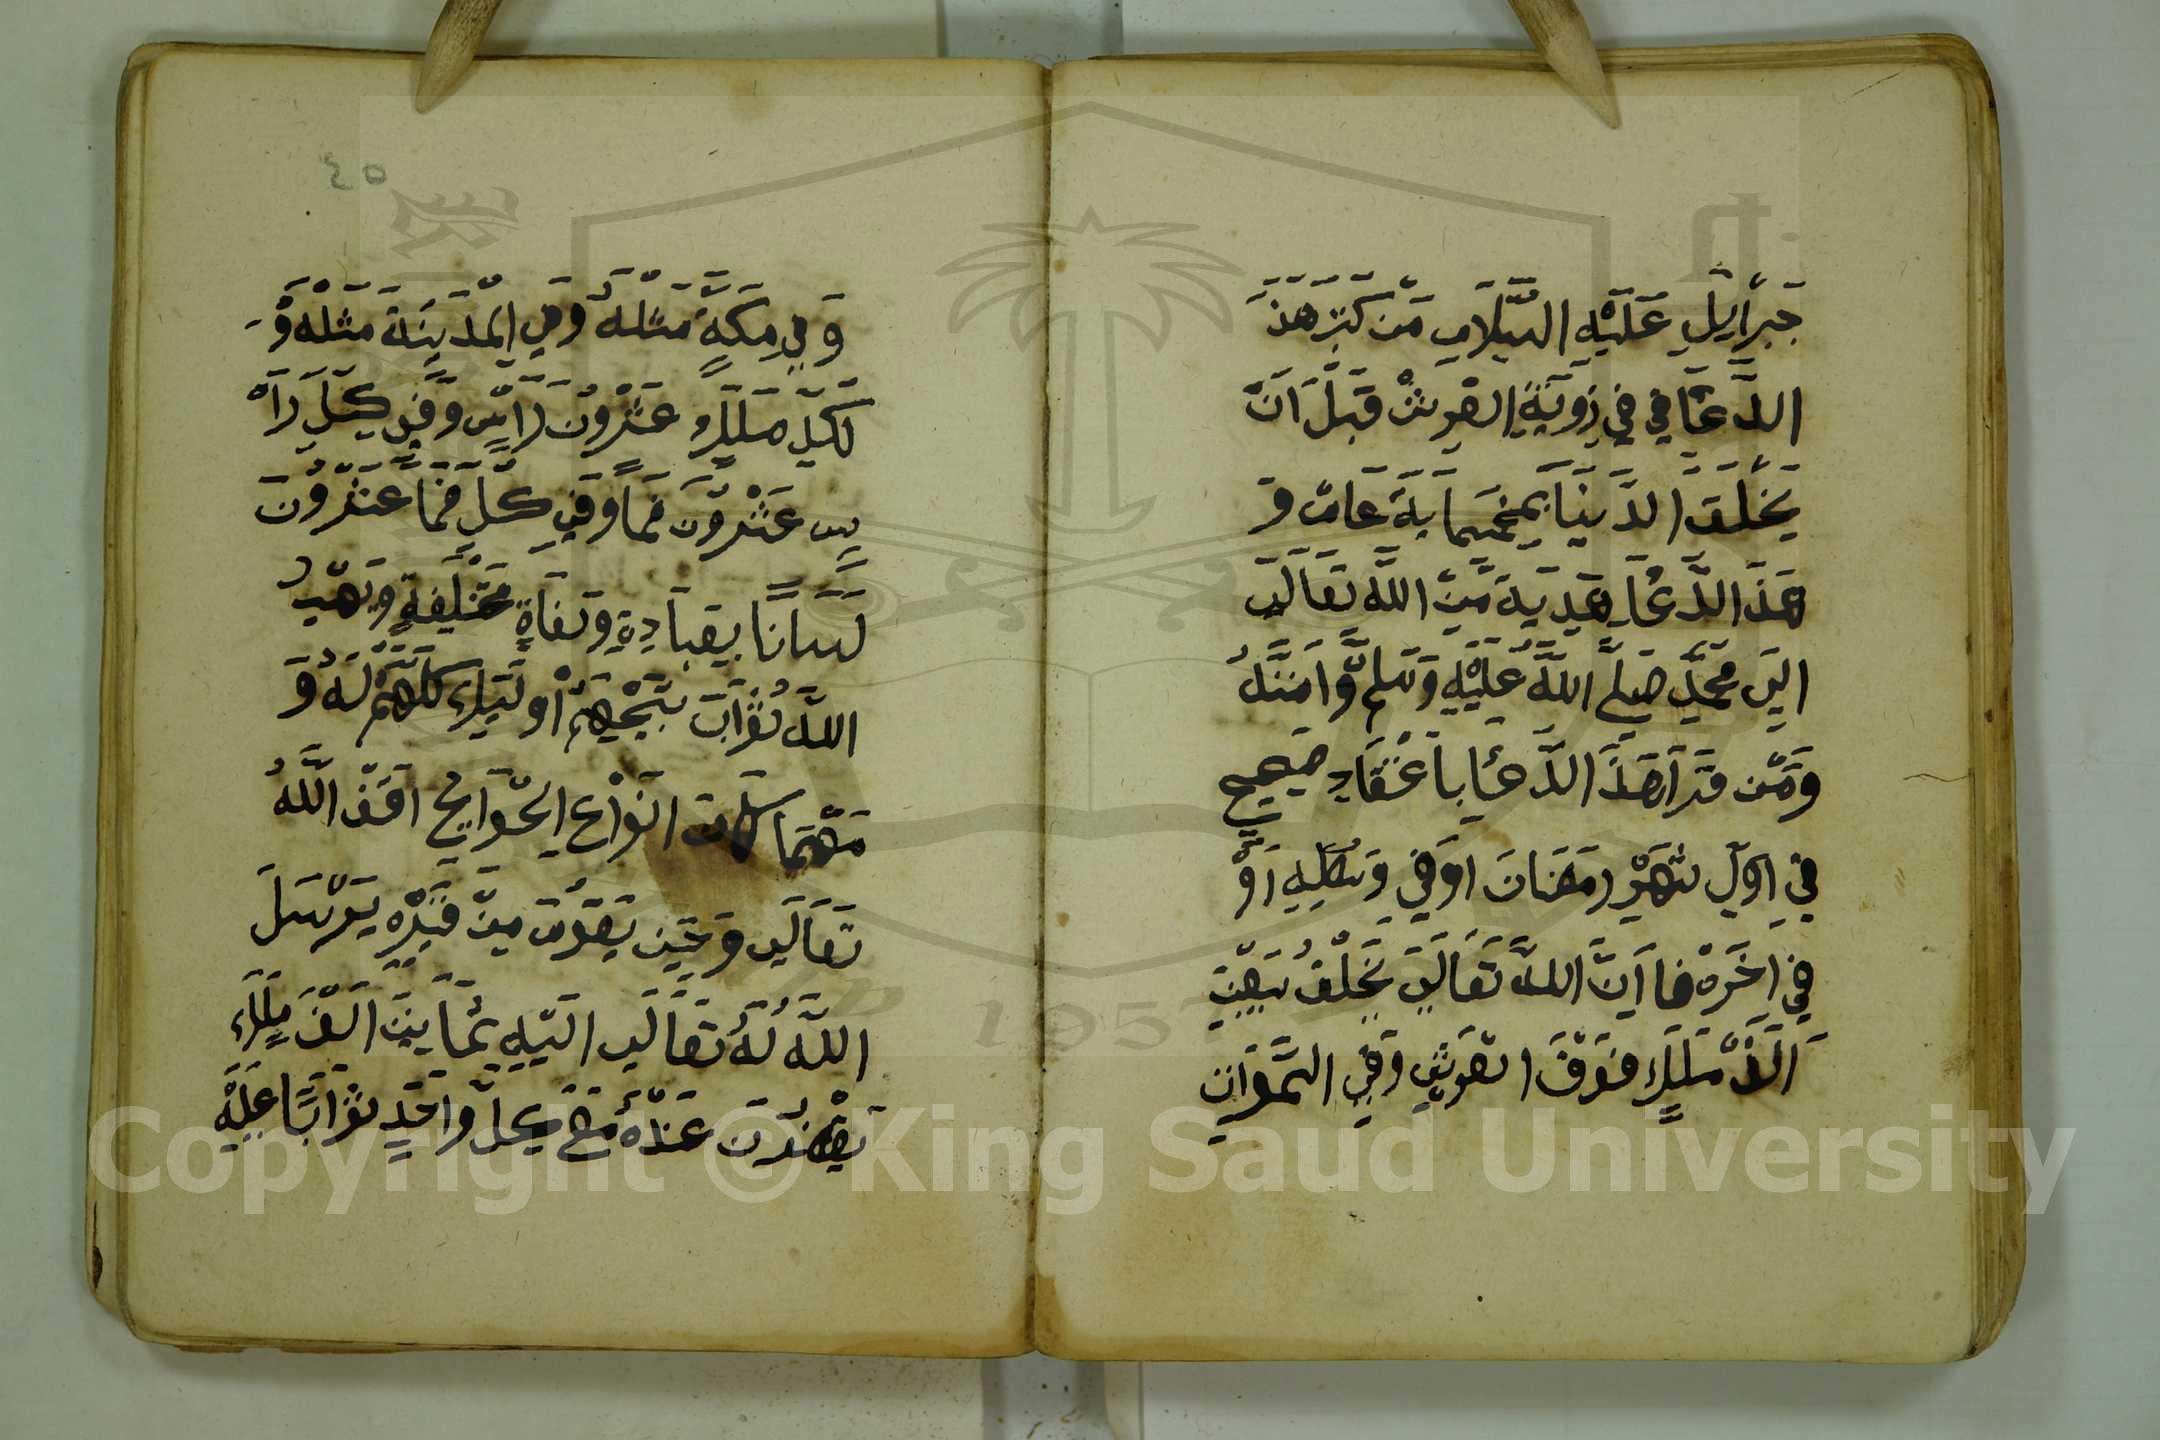 جبرايل عليه السلام من كتر هذ
الدعا في في زوية العرش قبل ان
يخلق الدنيا بخمسماية عام و
هذ الدعا هدية من الله تعالى
الى محمد صلى الله عليه وسلم وامنه
ومن قرا هذ الدعا باعتقاد صحيح
في اول شهر رمضان او في وسطه او
في اخره فا ان الله تعالى يخلق
الف ملك فوق العرش وفي السموات
٤٥
وفي مكة مثله وفي المدينة مثله و
لكل ملك عشرون راس وفي كل را
س عشرون فما وفي كل فما عشرون
لسانا بعبادة مختلفة
الله ثواب اوليك كلهم له و
مهما كان انواع الحوايج الله
تعالى وحين يقوم من قبره يرسل
الله له تعالى اليه ثمانين الف ملك
عنده مع كل واحد ثوابا عليه
Copyright © King Saud University
1957